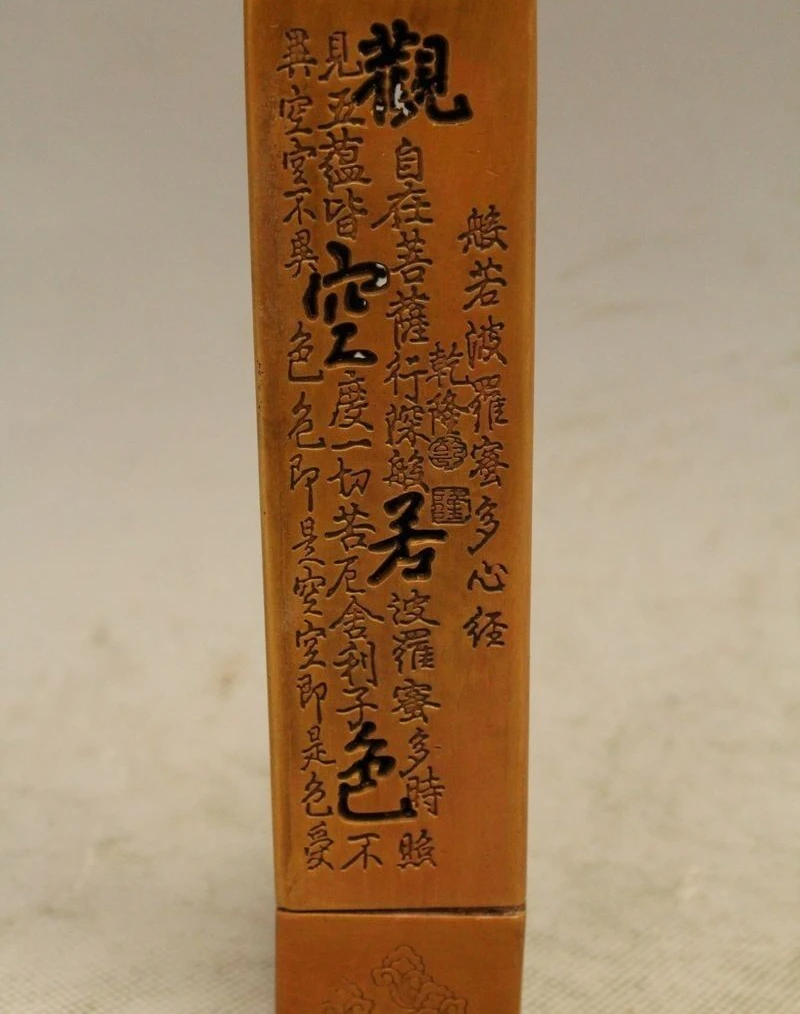 般若波羅蜜多心経
乾隆
觀自在菩薩行深般若波羅蜜多時照
見五蘊皆空度一切苦厄舍利子色不
異空空不異色色即是空空即是色受